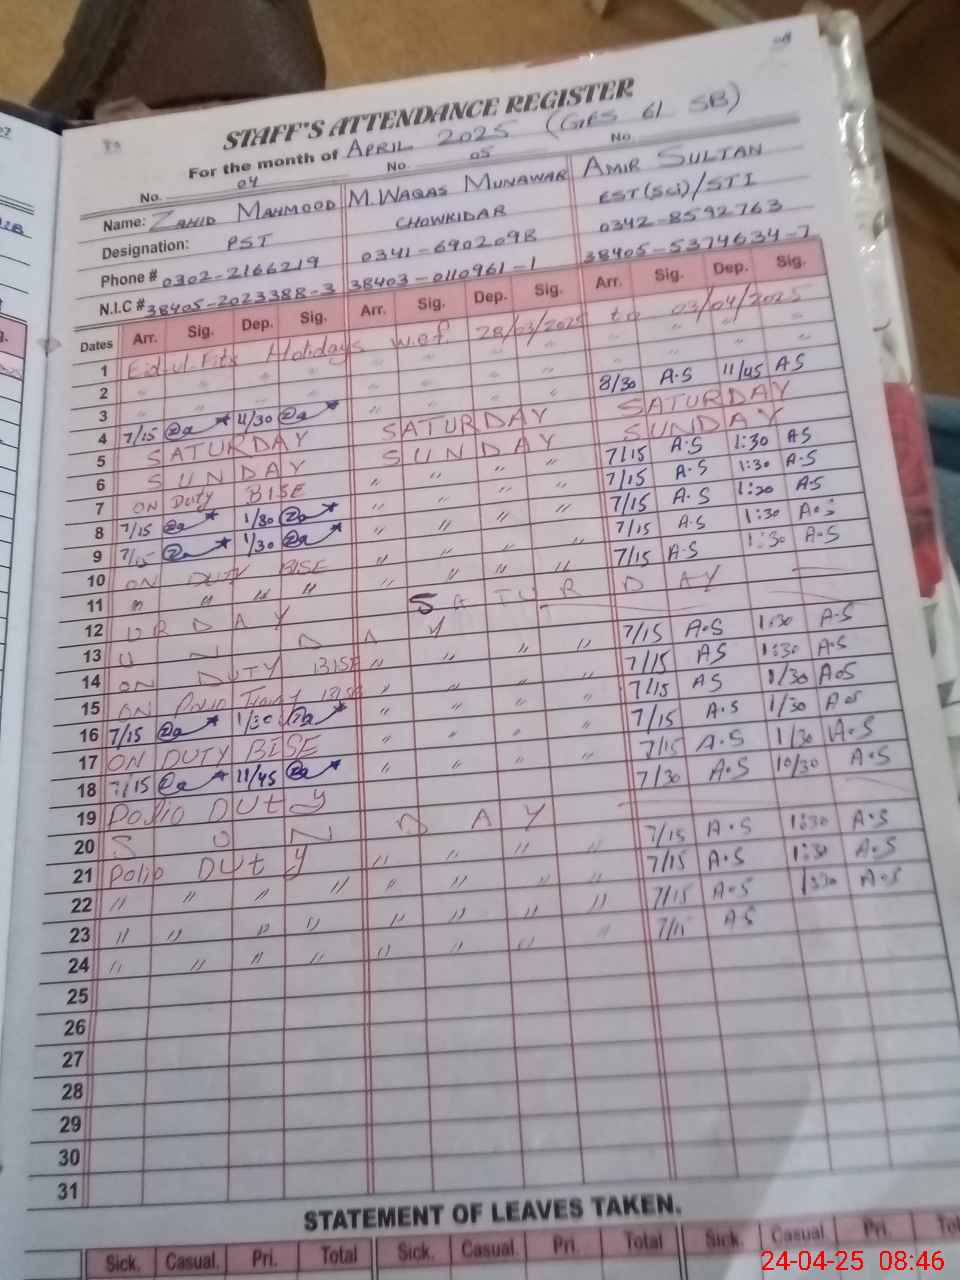 STAFF'S ATTENDANCE REGISTER
For the month of APRIL 2025 (GES 61 SB)
No. 04 No. 05 No.
Name: ZAHID MAHMOOD M.WAQAS MUNAWAR AMIR SULTAN
Designation: PST CHOWKIDAR EST(Sci)/STI
Phone # 0302-2166219 0341-6902098 0342-8592763
N.I.C # 38405-2023388-3 38403-0110961-1 38405-5374634-7
Dates Arr. Sig. Dep. Sig. Arr. Sig. Dep. Sig. Arr. Sig. Dep. Sig.
1 Eid-ul-Fitr Holidays w.e.f 28/03/2025 to 03/04/2025
2 " " " " " " " " " " " "
3 " " " " " " " " " " " "
4 7/15 11/30 " " " " 8/30 A.S 11/45 AS
5 SATURDAY SATURDAY SATURDAY
6 SUNDAY SUNDAY SUNDAY
7 ON Duty BISE " " " " 7/15 A.S 1:30 AS
8 7/15 1/30 " " " " 7/15 A.S 1:30 A.S
9 7/15 1/30 " " " " 7/15 A.S 1:30 A.S
10 ON DUTY BISE " " " " 7/15 A.S 1:30 A.S
11 " " " " " " " " 7/15 A.S 1:30 A.S
12 SATURDAY
13 U N D A Y
14 ON DUTY BISE " " " " 7/15 A.S 1:30 A.S
15 ON " " " " 7/15 AS 1:30 A.S
16 7/15 1/30 " " " " 7/15 AS 1/30 A.S
17 ON DUTY BISE " " " " 7/15 A.S 1/30 A.S
18 7/15 11/45 " " " " 7/15 A.S 1/30 A.S
19 Polio DUty 7/30 A.S 10/30 A.S
20 S U N D A Y
21 Polio DUty " " " " 7/15 A.S 1:30 A.S
22 " " " " " " " " 7/15 A.S 1:30 A.S
23 " " " " " " " " 7/15 A.S 1:30 A.S
24 " " " " " " " 7/15 AS
25
26
27
28
29
30
31
STATEMENT OF LEAVES TAKEN.
Sick. Casual. Pri. Total Sick. Casual. Pri. Total Sick. Casual. Pri.
24-04-25 08:46